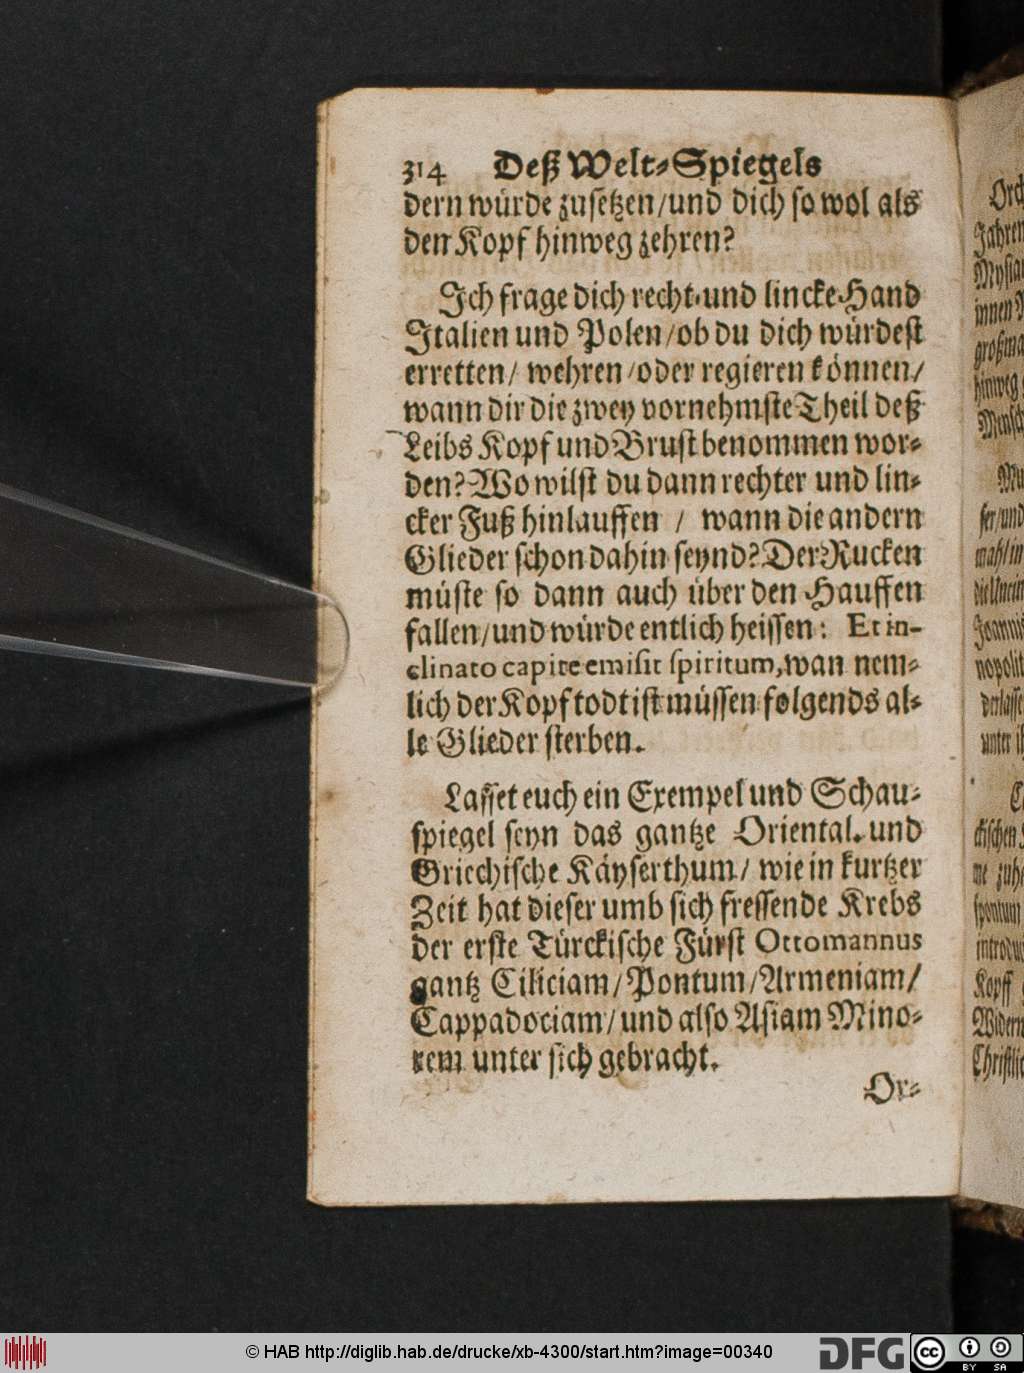 314 Deß Welt-Spiegels
dern würde zusetzen/und dich so wol als
den Kopf hinweg zehren?
Ich frage dich recht- und lincke Hand
Italien und Polen/ob du dich würdest
erretten/ wehren/oder regieren können/
wann dir die zwey vornehmste Theil deß
Leibs Kopf und Brust benommen wor-
den? Wo wilst du dann rechter und lin-
cker Fuß hinlauffen / wann die andern
Glieder schon dahin seynd? Der Rucken
müste so dann auch über den Hauffen
fallen/und würde entlich heissen: Et in-
clinato capite emisit spiritum, wan nem-
lich der Kopf todt ist müssen folgends al-
le Glieder sterben.
Lasset euch ein Exempel und Schau-
spiegel seyn das gantze Oriental. und
Griechische Käyserthum/ wie in kurtzer
Zeit hat dieser umb sich fressende Krebs
der erste Türckische Fürst Ottomannus
gantz Ciliciam/Pontum/Armeniam/
Cappadociam/und also Asiam Mino-
rem unter sich gebracht.
Or-
Jahren
innen
hinweg
Mensch
ser/und
mahl in
nopolit
unter ih
ckischen
me zuh
spontum
introduc
Kopff
Widern
Christlic
© HAB http://diglib.hab.de/drucke/xb-4300/start.htm?image=00340
DFG
cc
BY SA